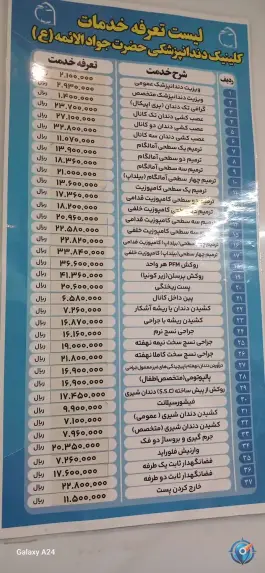 لیست تعرفه خدمات
کلینیک دندانپزشکی حضرت جوادالائمه (ع)
ردیف شرح خدمت تعرفه خدمت
۱ ویزیت دندانپزشک عمومی ۲.۱۰۰.۰۰۰ ریال
۲ ویزیت دندانپزشک متخصص ۲.۹۳۰.۰۰۰ ریال
۳ گرافی تک دندان (پری اپیکال) ۱.۴۰۰.۰۰۰ ریال
۴ عصب کشی دندان تک کانال ۲۳.۷۰۰.۰۰۰ ریال
۵ عصب کشی دندان دو کانال ۲۷.۱۰۰.۰۰۰ ریال
۶ عصب کشی دندان سه کانال ۳۲.۸۰۰.۰۰۰ ریال
ترمیم یک سطحی آمالگام ۱۱.۰۷۰.۰۰۰ ریال
ترمیم دو سطحی آمالگام ۱۳.۹۰۰.۰۰۰ ریال
ترمیم سه سطحی آمالگام ۱۸.۳۶۰.۰۰۰ ریال
ترمیم چهار سطحی آمالگام (بیلداپ) ۲۱.۰۰۰.۰۰۰ ریال
ترمیم یک سطحی کامپوزیت ۱۳.۶۰۰.۰۰۰ ریال
ترمیم دو سطحی کامپوزیت قدامی ۱۷.۳۶۰.۰۰۰ ریال
ترمیم دو سطحی کامپوزیت خلفی ۱۸.۲۰۰.۰۰۰ ریال
ترمیم سه سطحی کامپوزیت قدامی ۲۰.۹۶۰.۰۰۰ ریال
ترمیم سه سطحی کامپوزیت خلفی ۲۲.۵۸۰.۰۰۰ ریال
ترمیم چهار سطحی (بیلداپ) کامپوزیت قدامی ۲۲.۸۲۰.۰۰۰ ریال
ترمیم چهار سطحی (بیلداپ) کامپوزیت خلفی ریال
روکش PFM هر واحد ۳۶.۶۰۰.۰۰۰ ریال
روکش پرسلن (زیرکونیا) ۴۱.۳۶۰.۰۰۰ ریال
پست ریختگی ۲۰.۶۰۰.۰۰۰ ریال
پین داخل کانال ۶.۵۸۰.۰۰۰ ریال
کشیدن دندان یا ریشه آشکار ۷.۲۶۰.۰۰۰ ریال
کشیدن ریشه با جراحی ۱۶.۸۷۰.۰۰۰ ریال
جراحی نسج نرم ۱۶.۱۶۰.۰۰۰ ریال
جراحی نسج سخت نیمه نهفته ۱۹.۰۰۰.۰۰۰ ریال
جراحی نسج سخت کاملا نهفته ۲۱.۸۰۰.۰۰۰ ریال
۱۶.۹۰۰.۰۰۰ ریال
پالپوتومی (متخصص اطفال) ۱۶.۹۰۰.۰۰۰ ریال
روکش از پیش ساخته (S.S.C) دندان شیری ۱۷.۴۵۰.۰۰۰ ریال
فیشورسیلانت ۹.۹۰۰.۰۰۰ ریال
کشیدن دندان شیری (عمومی) ۷.۱۰۰.۰۰۰ ریال
کشیدن دندان شیری (متخصص) ۷.۹۶۰.۰۰۰ ریال
جرم گیری و بروساژ دو فک ۲۰.۳۵۰.۰۰۰ ریال
وارنیش فلوراید ۷.۲۶۰.۰۰۰ ریال
فضانگهدار ثابت یک طرفه ۱۷.۶۰۰.۰۰۰ ریال
فضانگهدار ثابت دو طرفه ۲۲.۸۰۰.۰۰۰ ریال
خارج کردن پست ۱۱.۵۰۰.۰۰۰ ریال
Galaxy A24